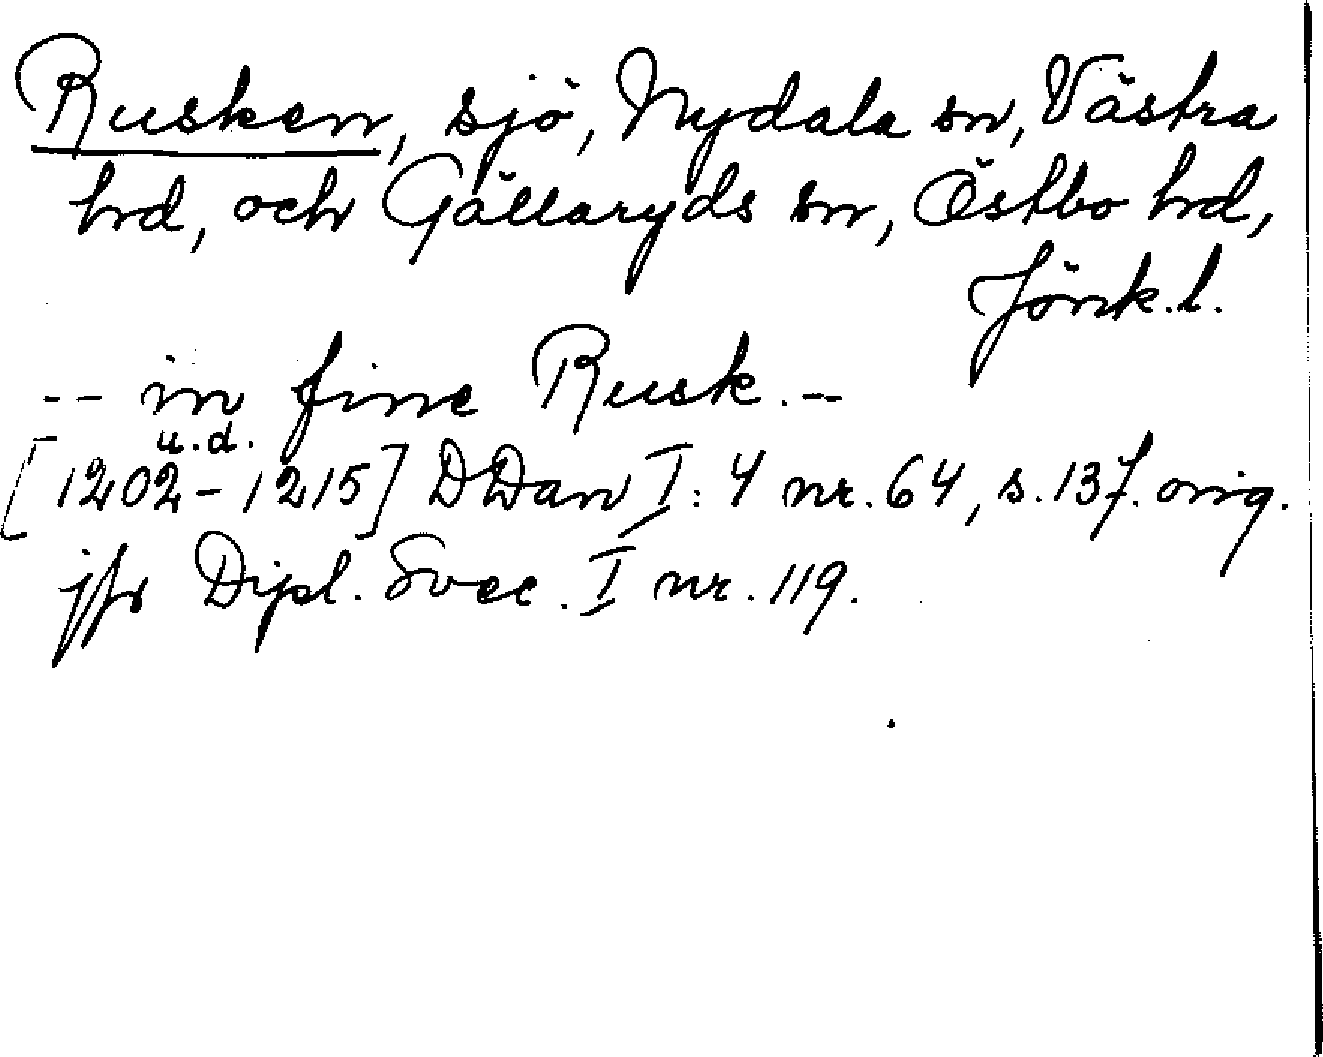 Rusken, sjö, Nydala sn, Västra
hrd, och Gällaryds sn, Östbo hrd,
Jönk.l.
-- in fine Rusk. --
u.d.
[1202-1215] DDan I:4 nr. 64, s. 137. orig.
jfr Dipl. Svec. I nr. 119.